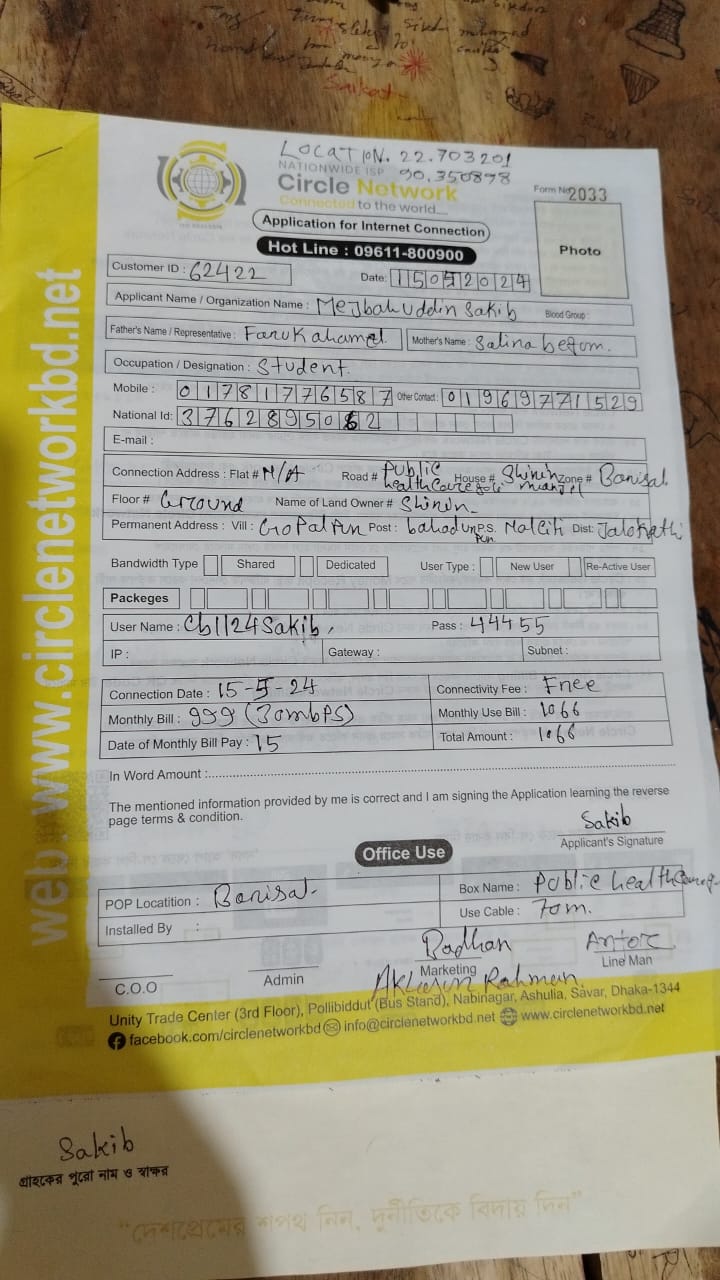 LOCATION. 22.703201
90.350878
NATIONWIDE ISP
Circle Network
Connected to the world....
Form No 2033
Application for Internet Connection
Hot Line : 09611-800900
Photo
Customer ID : 62422 Date: 15052024
Applicant Name / Organization Name : Mejbah Uddin Sakib Blood Group :
Father's Name / Representative : Faruk ahamed. Mother's Name : Salina begom.
Occupation / Designation : Student.
Mobile : 01781776587 Other Contact : 01969771529
National Id: 3762895062
E-mail :
Connection Address : Flat # N/A Road # Public healthcare goli House # Shirin manzel Zone # Barisal
Floor # Ground Name of Land Owner # Shirin
Permanent Address : Vill : GoPalPur Post : bahadurpur P.S. Nalciti Dist: Jalokathi
Bandwidth Type Shared Dedicated User Type : New User Re-Active User
Packeges
User Name : Cb1124Sakib, Pass : 44455
IP : Gateway : Subnet :
Connection Date : 15-5-24 Connectivity Fee : Free
Monthly Bill : 999 (30mbPS) Monthly Use Bill : 1066
Date of Monthly Bill Pay : 15 Total Amount : 1066
In Word Amount :
The mentioned information provided by me is correct and I am signing the Application learning the reverse
page terms & condition.
Sakib
Applicant's Signature
Office Use
POP Locatition : Barisal. Box Name : Public health
Installed By : Use Cable : 70m.
Badhan
C.O.O Admin Marketing Line Man
Rahman
Unity Trade Center (3rd Floor), Pollibiddut (Bus Stand), Nabinagar, Ashulia, Savar, Dhaka-1344
facebook.com/circlenetworkbd info@circlenetworkbd.net www.circlenetworkbd.net
web : www.circlenetworkbd.net
Sakib
গ্রাহকের পুরো নাম ও স্বাক্ষর
“দেশপ্রেমের শপথ নিন, দুর্নীতিকে বিদায় দিন”